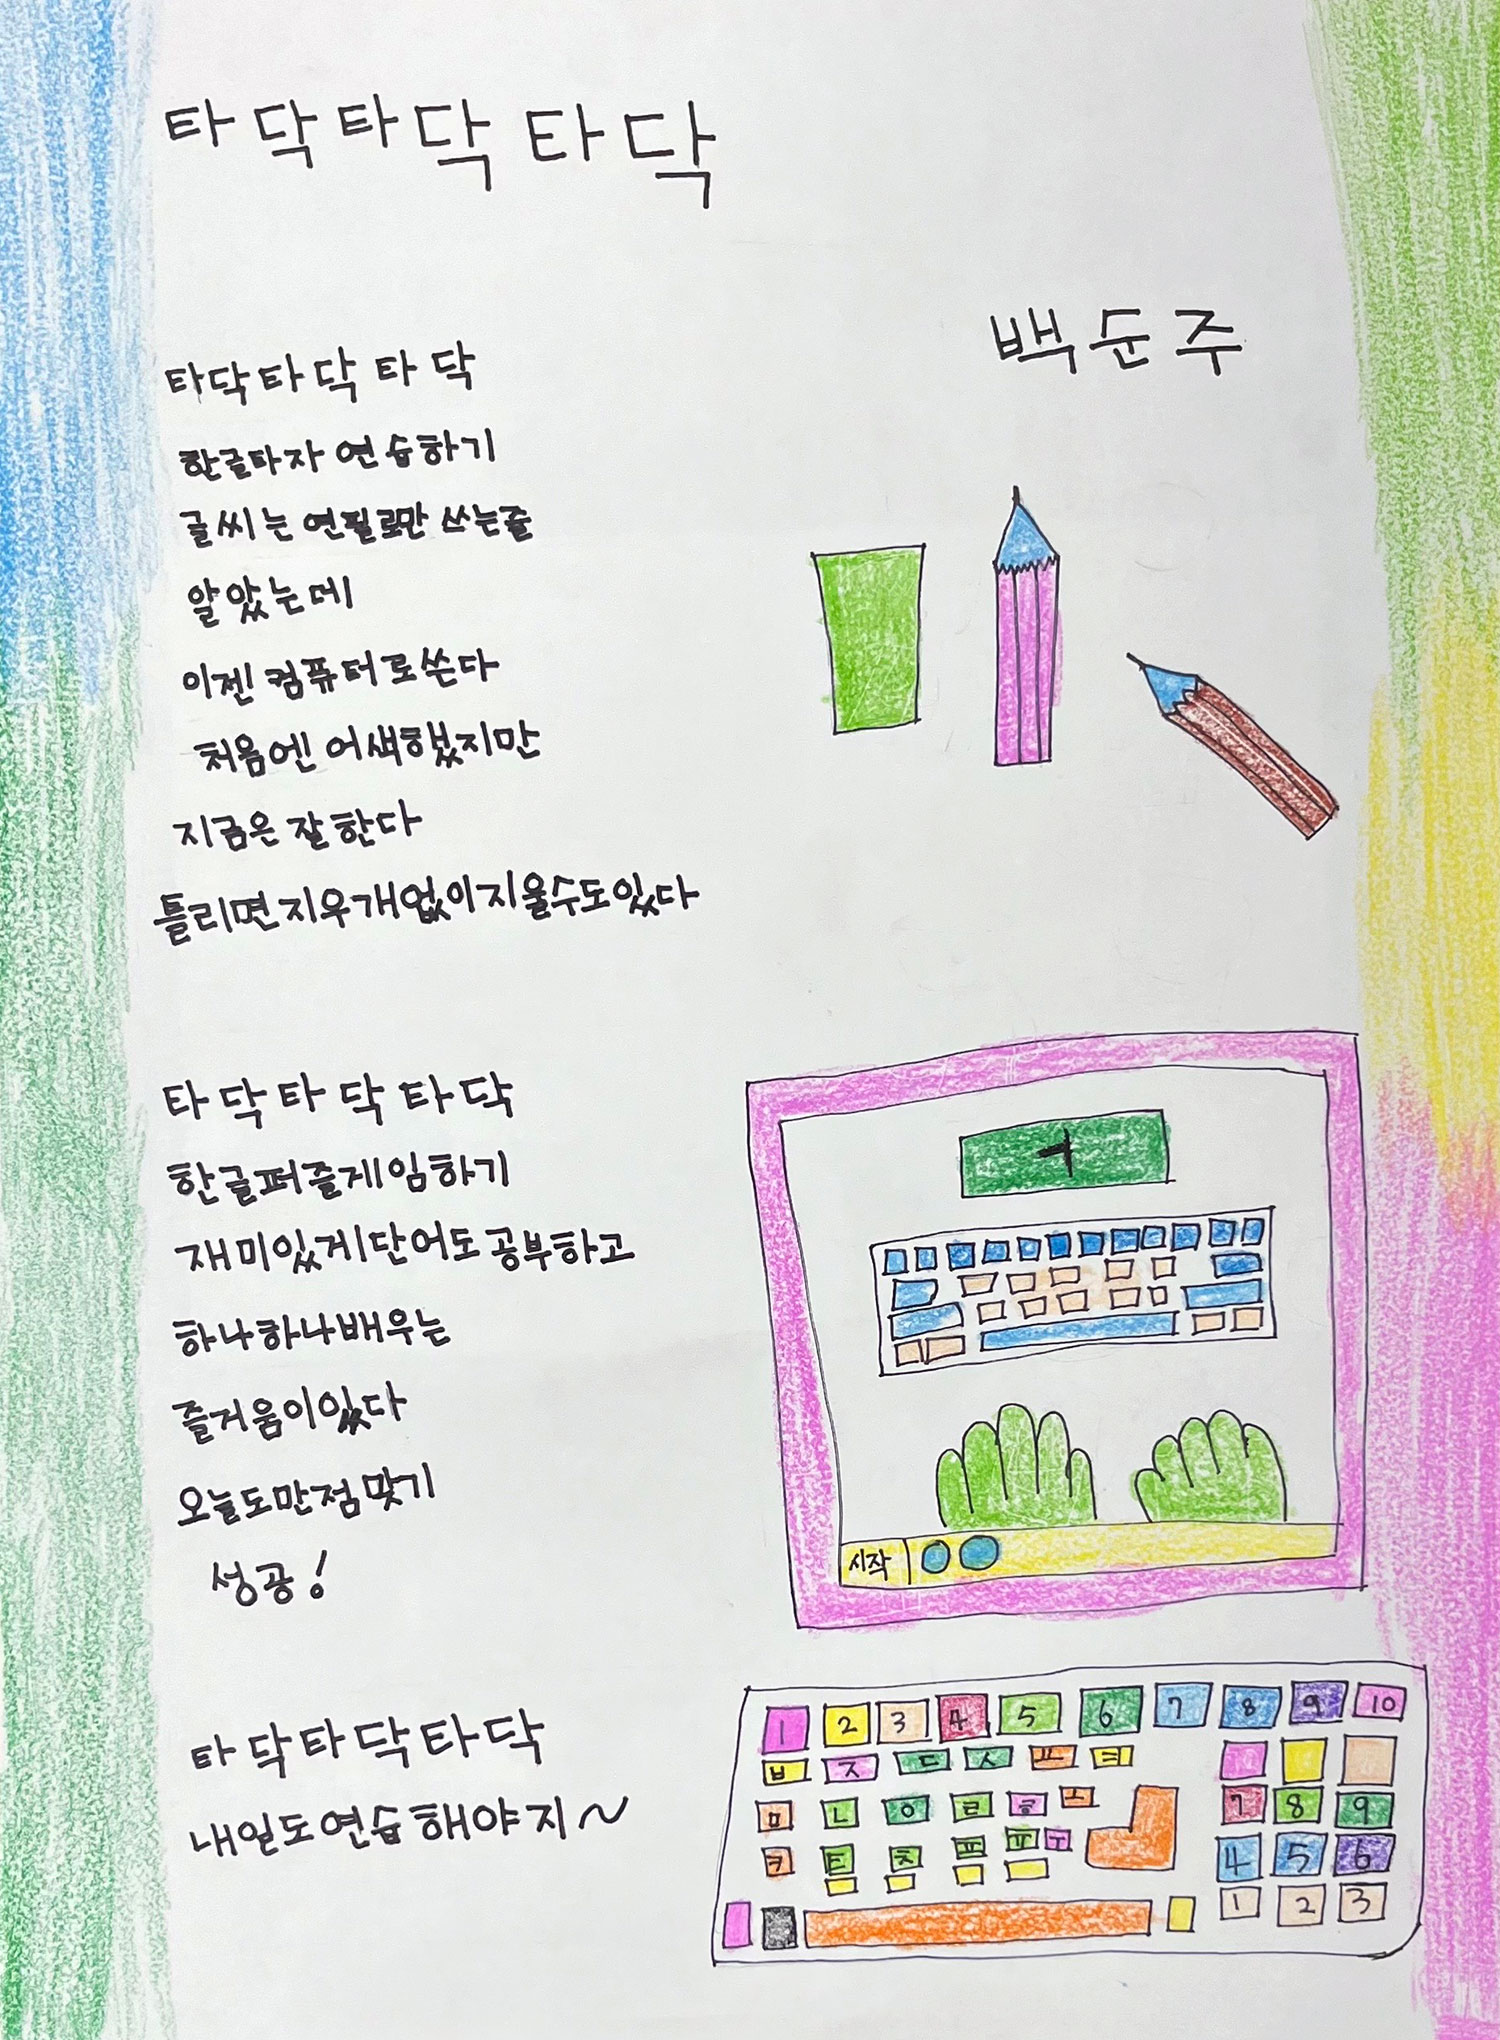 타닥타닥 타닥
백순주
타닥타닥 타닥
한글타자 연습하기
글씨는 연필로만 쓰는줄
알았는데
이젠 컴퓨터로쓴다
처음엔 어색했지만
지금은 잘한다
틀리면지우개없이지울수도있다
타닥타닥 타닥
한글퍼즐게임하기
재미있게단어도공부하고
하나하나배우는
즐거움이있다
오늘도만점맞기
성공!
타닥타닥타닥
내일도연습해야지~
ㅓ
시작
1 2 3 4 5 6 7 8 9 10
ㅂ ㅈ ㄷ ㅅ ㅛ ㅕ
ㅁ ㄴ ㅇ ㄹ ㅎ ㅗ 7 8 9
ㅋ ㅌ ㅊ ㅍ ㅠ ㅜ 4 5 6
1 2 3